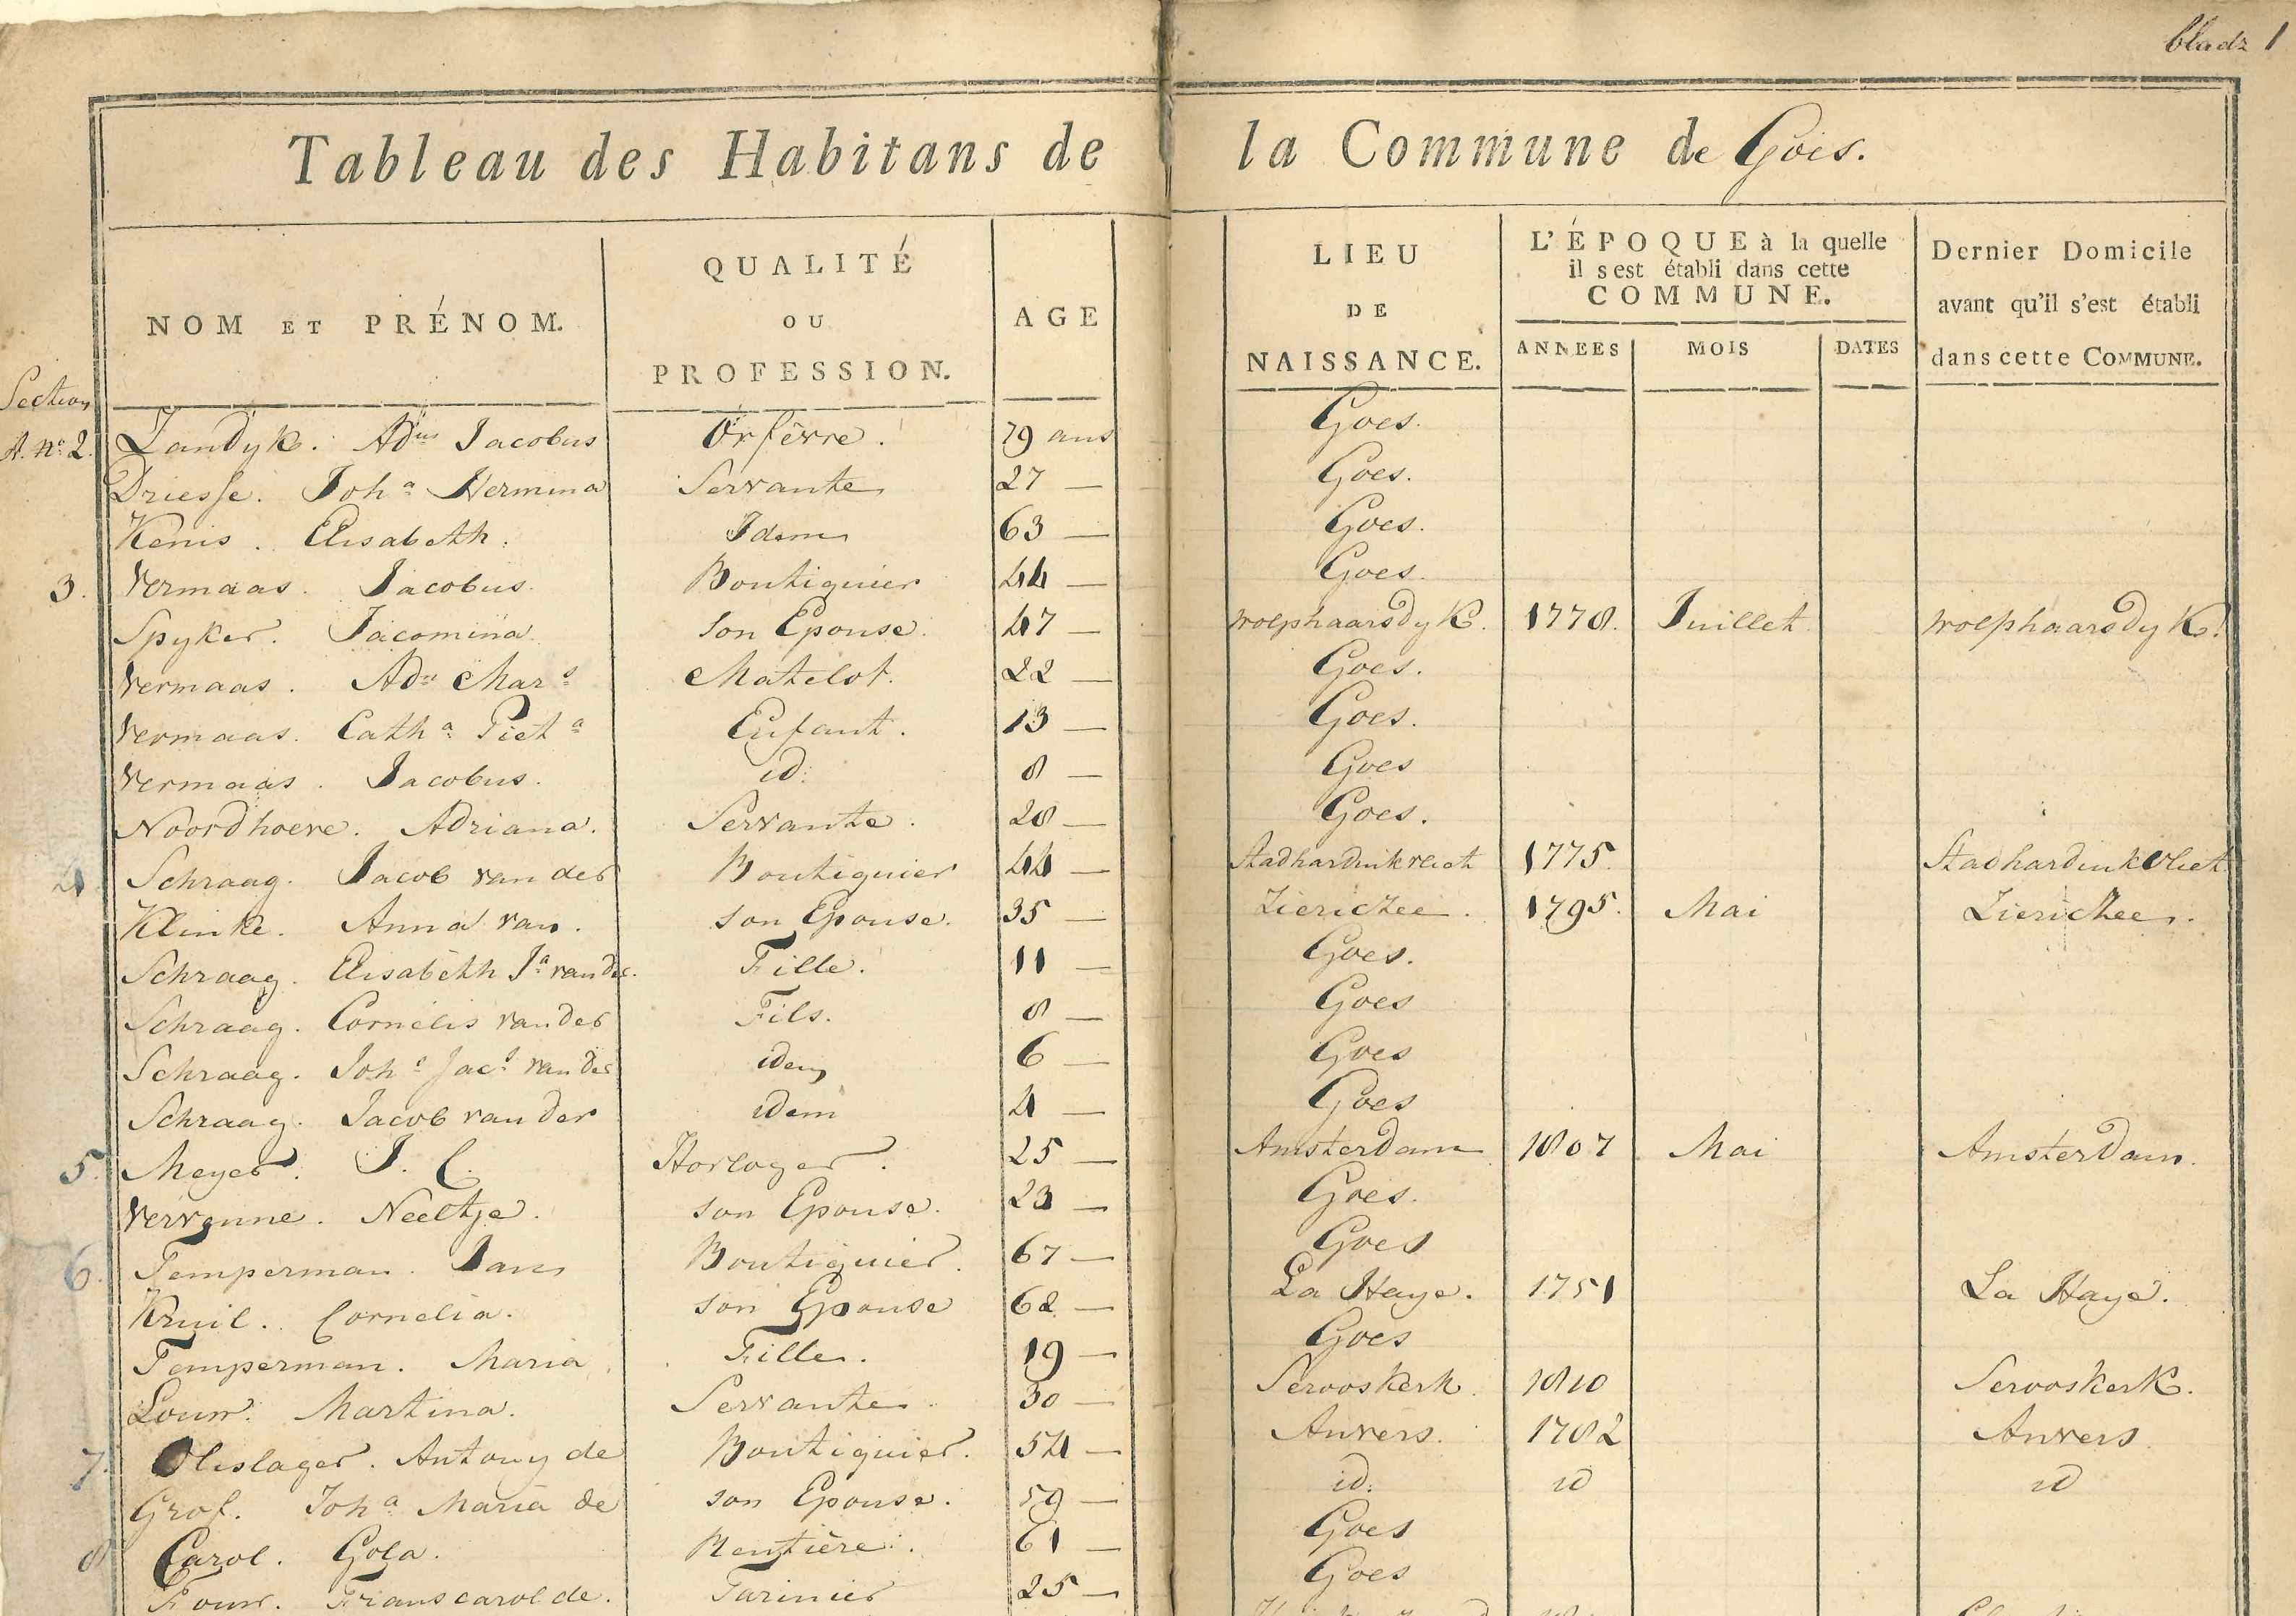 bladz 1
Tableau des Habitans de la Commune de Goes.
NOM ET PRÉNOM.
QUALITÉ
OU
PROFESSION.
AGE
LIEU
DE
NAISSANCE.
L'ÉPOQUE à la quelle
il s'est établi dans cette
COMMUNE.
ANNEES MOIS DATES
Dernier Domicile
avant qu'il s'est établi
dans cette COMMUNE.
Section
A. No. 2. Zandyk. Adus Jacobus Orfèvre. 79 ans Goes.
Driesse. Joha Hermina Servante 27 — Goes.
Kenis. Elisabeth. Idem 63 — Goes.
3. Vermaas. Jacobus. Boutiquier 44 — Goes.
Spyker. Jacomina. son Epouse. 47 — Wolphaarsdyk. 1778. Juillet Wolphaarsdyk.
Vermaas. Adn Mars Matelot. 22 — Goes.
Vermaas. Catha Pieta Enfant. 13 — Goes.
Vermaas. Jacobus. id. 8 — Goes
Noordhoeve. Adriana. Servante. 28 — Goes.
4. Schraag. Jacob van der Boutiquier 44 — Stadhardinkvliet 1775. Stadhardinkvliet
Klinke. Anna van. son Epouse. 35 — Zierickzee. 1795. Mai Zierickzee.
Schraag. Elisabeth Ja van der. Fille. 11 — Goes.
Schraag. Cornelis van der Fils. 8 — Goes
Schraag. Johs Jacs van der idem 6 — Goes
Schraag. Jacob van der idem 4 — Goes
5. Meyer. J. C. Horloger. 25 — Amsterdam 1807 Mai Amsterdam.
Vervenne. Neeltje. son Epouse. 23 — Goes.
6. Temperman. Jan Boutiquier. 67 — Goes
Kruil. Cornelia. son Epouse 62 — La Haye. 1751 La Haye.
Temperman. Maria. Fille. 19 — Goes
Louw. Martina. Servante 30 — Serooskerk. 1810 Serooskerk.
7. Olislager. Antony de Boutiquier. 54 — Anvers. 1782 Anvers
Grof. Joha Maria de son Epouse. 59 — id. id id
8 Carol. Gola. Rentière. 61 — Goes
Fouw. Frans carol de. Farinier 25 — Goes